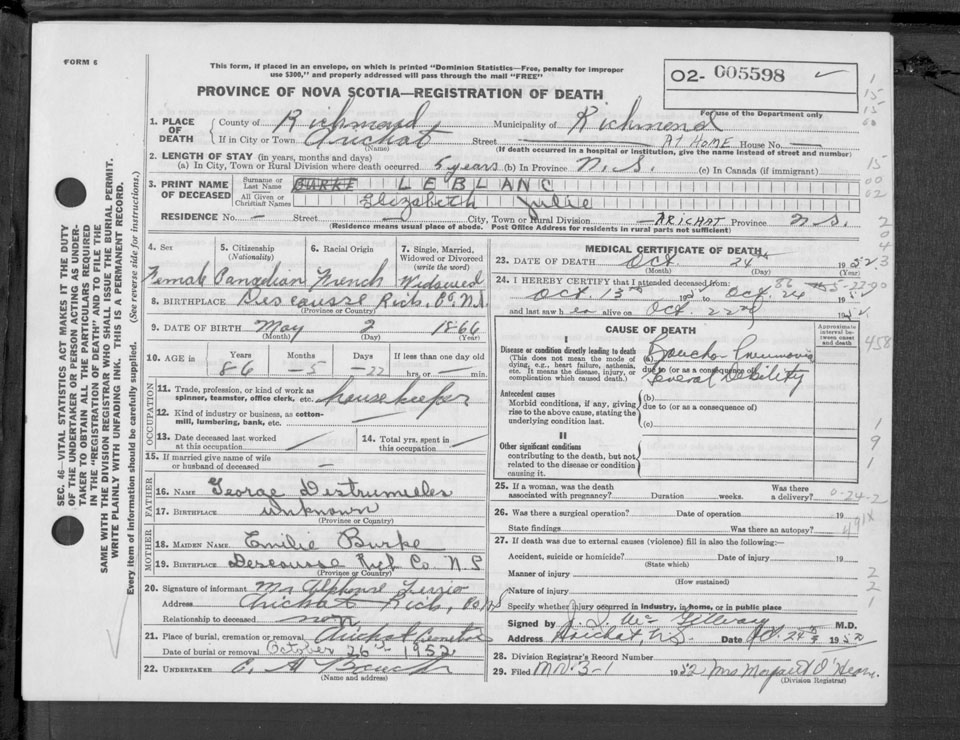 FORM 6
This form, if placed in an envelope, on which is printed "Dominion Statistics—Free, penalty for improper
use $300," and properly addressed will pass through the mail "FREE"
O2- 005598
For use of the Department only
PROVINCE OF NOVA SCOTIA—REGISTRATION OF DEATH
1. PLACE OF DEATH
County of Richmond Municipality of Richmond
If in City or Town Arichat Street — AT HOME House No. —
(Name) (If death occurred in a hospital or institution, give the name instead of street and number)
2. LENGTH OF STAY (in years, months and days)
(a) In City, Town or Rural Division where death occurred 5 years (b) In Province N.S. (c) In Canada (if immigrant)
3. PRINT NAME OF DECEASED
Surname or Last Name BURKE LEBLANC
All Given or Christian Names Elizabeth Julie
RESIDENCE No. — Street — City, Town or Rural Division ARICHAT Province N.S.
(Residence means usual place of abode. Post Office Address for residents in rural parts not sufficient)
4. Sex 5. Citizenship (Nationality) 6. Racial Origin 7. Single, Married, Widowed or Divorced (write the word)
Female Canadian French Widowed
8. BIRTHPLACE Descousse Rich. Co. N.S.
(Province or Country)
9. DATE OF BIRTH May 2 1866
(Month) (Day) (Year)
10. AGE in Years Months Days If less than one day old
86 — 5 — 22 hrs, or — min.
OCCUPATION
11. Trade, profession, or kind of work as spinner, teamster, office clerk, etc. housekeeper
12. Kind of industry or business, as cotton-mill, lumbering, bank, etc. —
13. Date deceased last worked at this occupation
14. Total yrs. spent in this occupation
15. If married give name of wife or husband of deceased —
FATHER
16. NAME George
17. BIRTHPLACE unknown
(Province or Country)
MOTHER
18. MAIDEN NAME Emilie Burke
19. BIRTHPLACE Descousse Rich Co. N S
(Province or Country)
20. Signature of informant Mr Alphonse
Address Arichat Rich. Co N S
Relationship to deceased non
21. Place of burial, cremation or removal Arichat
Date of burial or removal October 26th 1952
22. UNDERTAKER
(Name and address)
MEDICAL CERTIFICATE OF DEATH
23. DATE OF DEATH Oct. 24th 1952
(Month) (Day) (Year)
24. I HEREBY CERTIFY that I attended deceased from:
Oct. 13th 195 to Oct 24 195
and last saw h er alive on Oct. 22nd 195
CAUSE OF DEATH
Approximate interval between onset and death
I
Disease or condition directly leading to death
(This does not mean the mode of dying, e.g., heart failure, asthenia, etc. It means the disease, injury, or complication which caused death.)
(a) Broncho Pneumonia
due to (or as a consequence of)
General Debility
Antecedent causes
Morbid conditions, if any, giving rise to the above cause, stating the underlying condition last.
(b)
due to (or as a consequence of)
(c)
II
Other significant conditions
contributing to the death, but not related to the disease or condition causing it.
25. If a woman, was the death associated with pregnancy? Duration weeks. Was there a delivery?
26. Was there a surgical operation? Date of operation 19
State findings Was there an autopsy?
27. If death was due to external causes (violence) fill in also the following:—
Accident, suicide or homicide? Date of injury 19
(State which)
Manner of injury
(How sustained)
Nature of injury
Specify whether injury occurred in industry, in home, or in public place
Signed by M.D.
Address Arichat, N.S. Date Oct. 24th 1952
28. Division Registrar's Record Number
29. Filed 3-1 1952 Mrs Margaret O'Hearn.
(Division Registrar)
SEC. 46 VITAL STATISTICS ACT MAKES IT THE DUTY
OF THE UNDERTAKER OR PERSON ACTING AS UNDER-
TAKER TO OBTAIN ALL THE PARTICULARS REQUIRED
IN THE "REGISTRATION OF DEATH" AND TO FILE THE
SAME WITH THE DIVISION REGISTRAR WHO SHALL ISSUE THE BURIAL PERMIT.
WRITE PLAINLY WITH UNFADING INK. THIS IS A PERMANENT RECORD.
Every item of information should be carefully supplied. (See reverse side for instructions.)